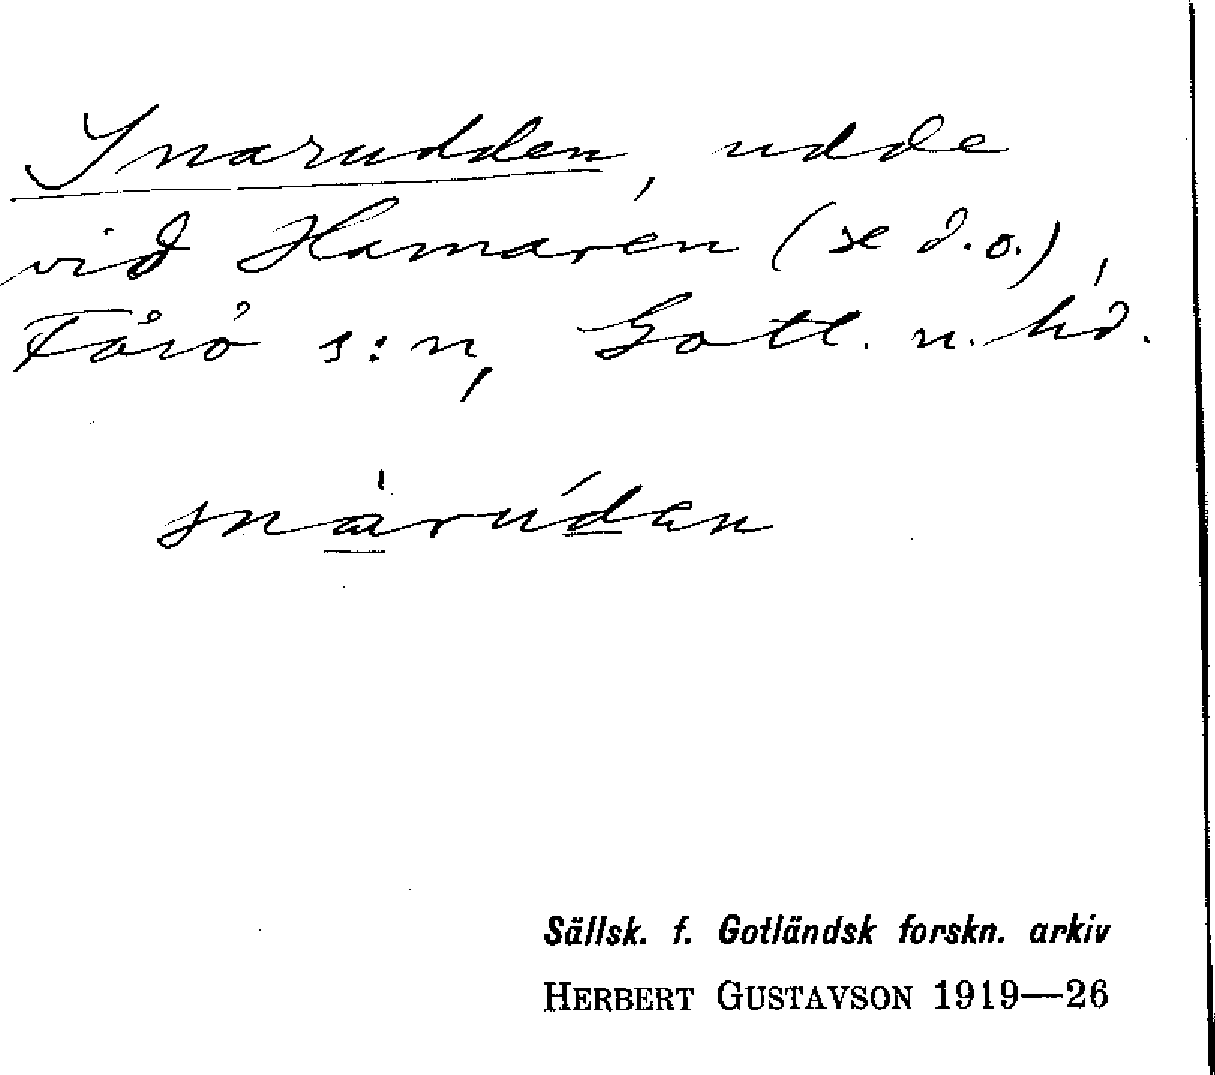 Snarudden, udde
vid Hamaren (se d.o.),
Fårö s:n, Gotl. n. hd.
snarúdan
Sällsk. f. Gotländsk forskn. arkiv
HERBERT GUSTAVSON 1919—26